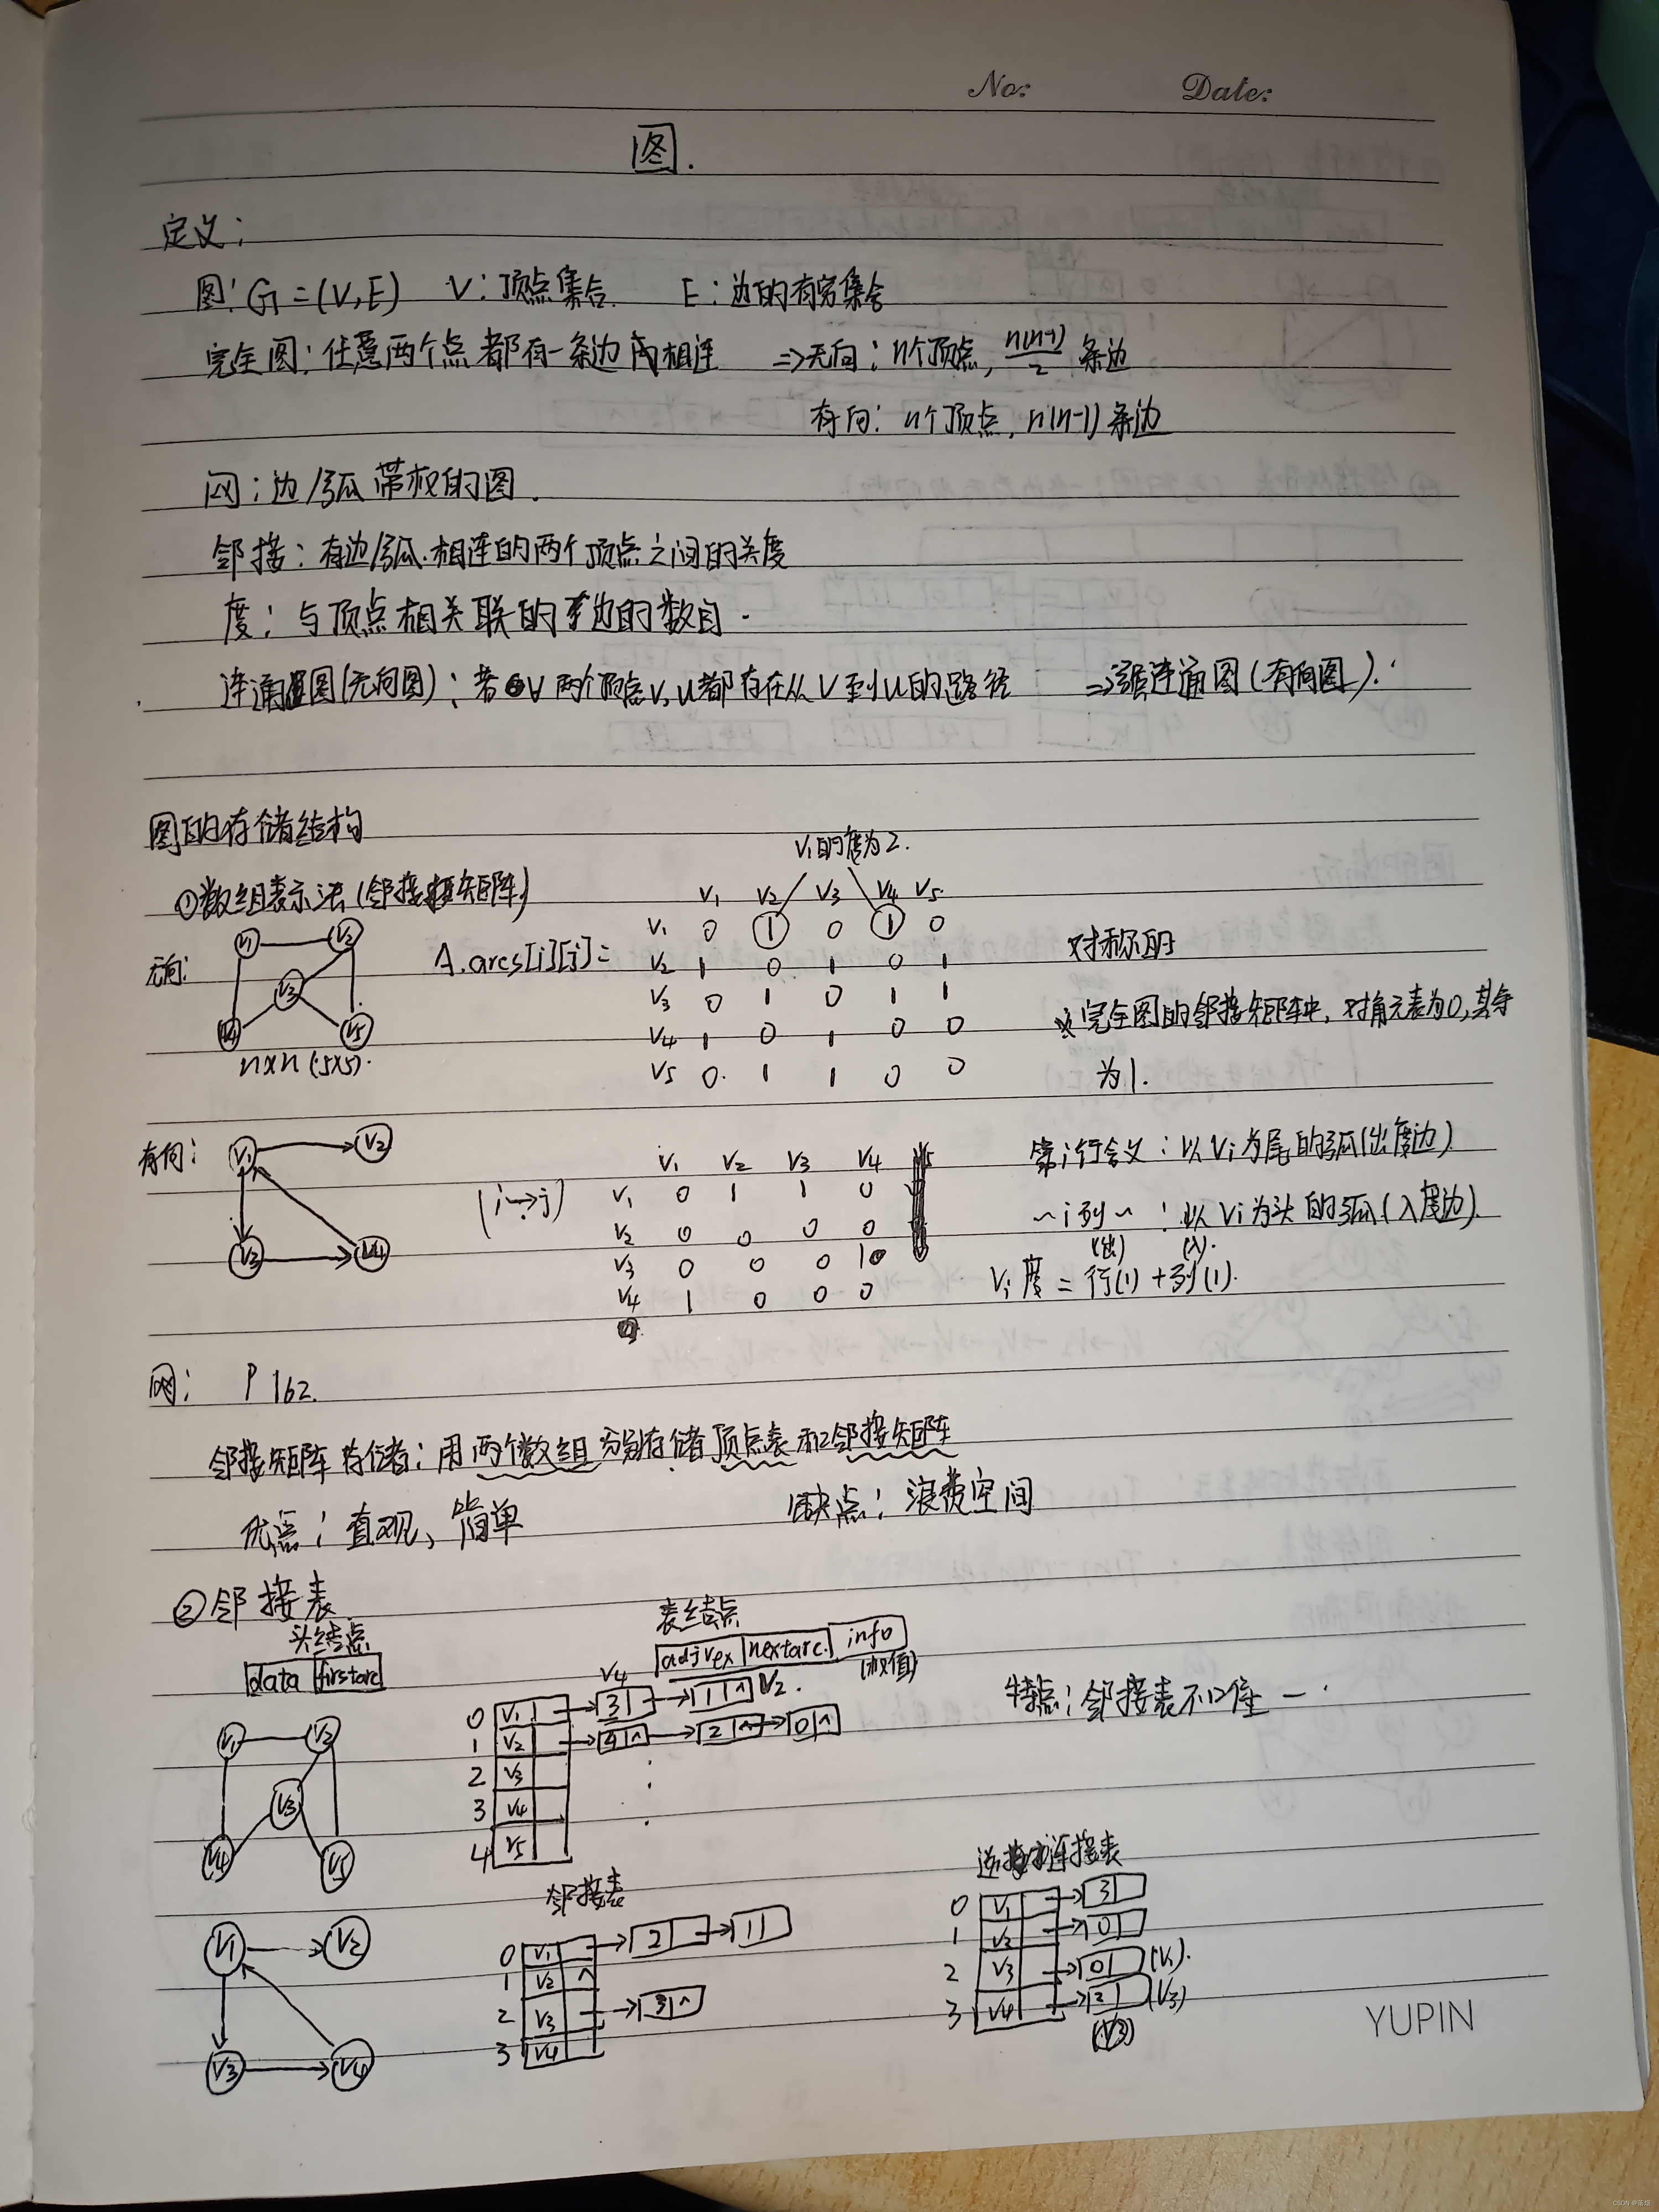 No: Date:
图.
定义:
图: G=(V,E) V:顶点集合. E:边的有穷集合
完全图:任意两个点都有一条边相连 => 无向:n个顶点, n(n-1)/2 条边
有向: n个顶点, n(n-1) 条边
网:边/弧带权的图.
邻接:有边/弧.相连的两个顶点之间的关度
度:与顶点相关联的边的数目.
连通图(无向图):若∀两个顶点V,U都存在从V到U的路径 => 强连通图(有向图).
图的存储结构
V1的度为2.
①数组表示法(邻接矩阵)
无向:
V1 V2 V3 V4 V5
n×n (5×5).
A.arcs[i][j]=
V1 V2 V3 V4 V5
V1 0 1 0 1 0
V2 1 0 1 0 1
V3 0 1 0 1 1
V4 1 0 1 0 0
V5 0 1 1 0 0
对称的
完全图的邻接矩阵中,对角元素为0,其余
为1.
有向:
V1 V2 V3 V4
(i→j)
V1 V2 V3 V4
V1 0 1 1 0
V2 0 0 0 0
V3 0 0 0 1
V4 1 0 0 0
第i行含义:以Vi为尾的弧(出度边)
~i列~:以Vi为头的弧(入度边)
(出) (入).
Vi度=行(1)+列(1).
网: P162.
邻接矩阵存储:用两个数组分别存储顶点表和邻接矩阵
优点:直观、简单 缺点:浪费空间
②邻接表
头结点
data firstarc
表结点
adjvex nextarc info
(权值)
V1 V2 V3 V4 V5
V4
0 V1 → 3 → 1 ^ V2.
1 V2 → 4 ^ → 2 ^ → 0 ^
2 V3
3 V4
4 V5
特点:邻接表不唯一.
邻接表
V1 V2 V3 V4
0 V1 → 2 → 1
1 V2 ^
2 V3 → 3 ^
3 V4
连接表
0 V1 → 3
1 V2 → 0
2 V3 → 0 (V1).
3 V4 → 2 (V3)
(V3)
YUPIN